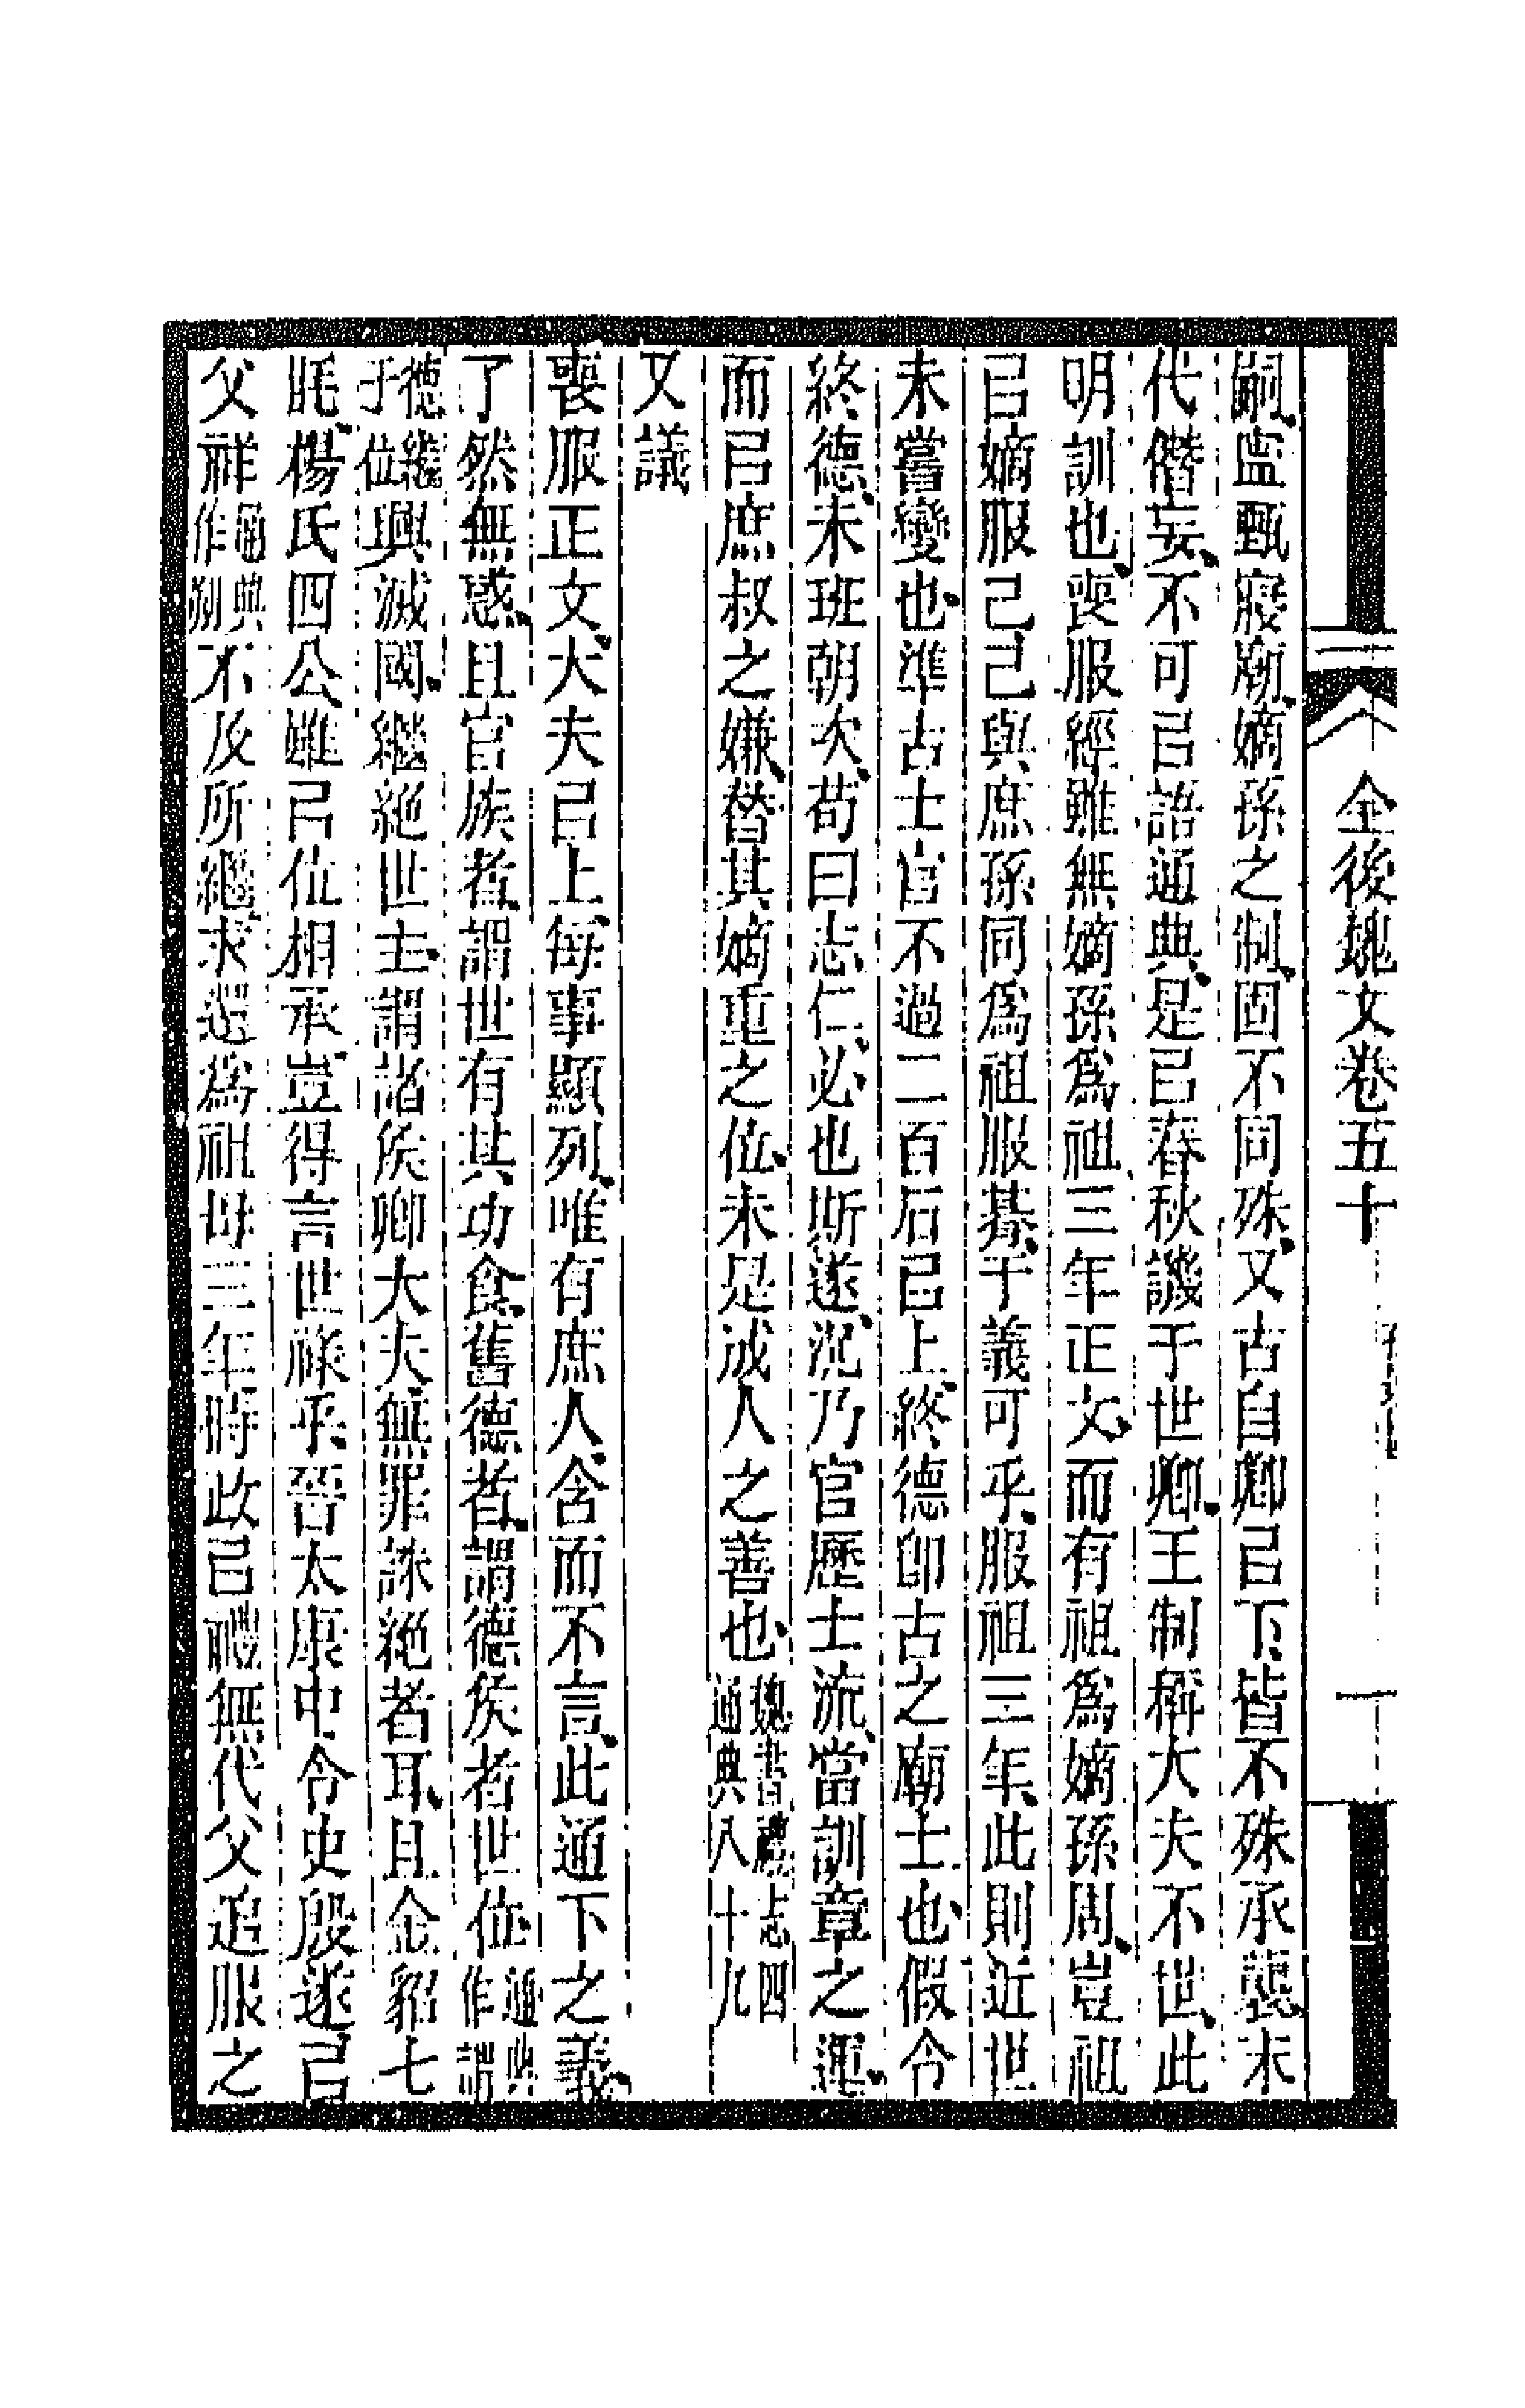 全後魏文卷五十
嗣寍甄寢廟嫡孫之制固不同殊又古自卿㠯下皆不殊承襲末
代僭妄不可㠯語通典是㠯春秋譏于世卿王制稱大夫不世此
明訓也喪服經雖無嫡孫爲祖三年正文而有祖爲嫡孫周豈祖
㠯嫡服己己與庶孫同爲祖服朞于義可乎服祖三年此則近世
未嘗變也準古士官不過二百石㠯上終德卽古之廟士也假令
終德未班朝次苟曰志仁必也斯遂況乃官歷士流當訓章之運
而㠯庶叔之嫌替其嫡重之位未是成人之善也魏書禮志四通典八十九
又議
喪服正文大夫㠯上每事顯列唯有庶人含而不言此通下之義
了然無惑且官族者謂世有其功食舊德者謂德矦者世位通典作謂
德繼于位興滅國繼絕世主謂諸矦卿大夫無罪誅絕者耳且金貂七
毦楊氏四公雖㠯位相承豈得言世祿乎晉太康中令史殷遂㠯
父祥通典作翔不及所繼求還爲祖母三年時政㠯禮無代父追服之